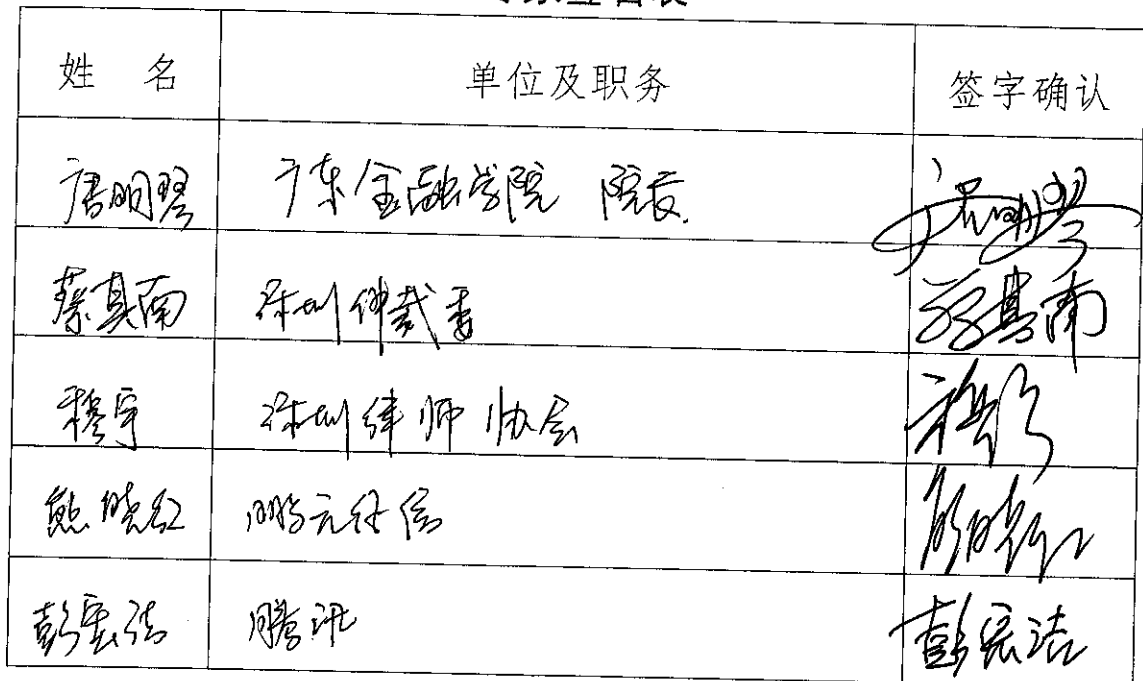 姓 名 单位及职务 签字确认
唐明琴 广东金融学院 院长 唐明琴
蔡其南 深圳仲裁委 蔡其南
穆宇 深圳律师协会 穆宇
熊晓红 鹏元征信 熊晓红
彭宏洁 腾讯 彭宏洁